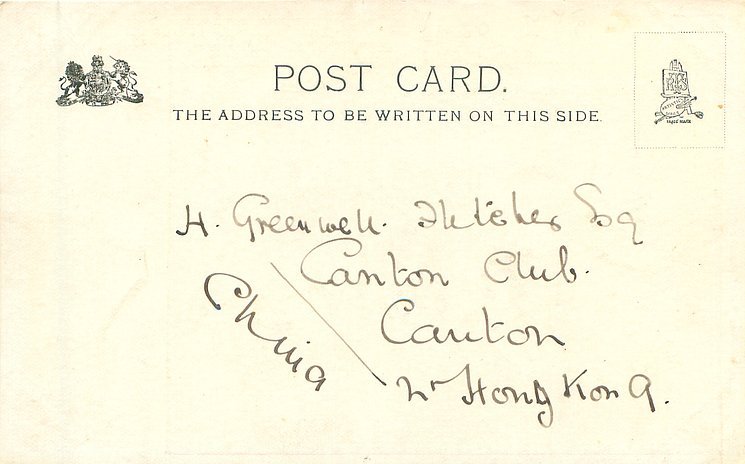 POST CARD.
THE ADDRESS TO BE WRITTEN ON THIS SIDE.
H. Greenwell. Fletcher Esq
Canton Club.
Canton
nr Hong Kong.
China